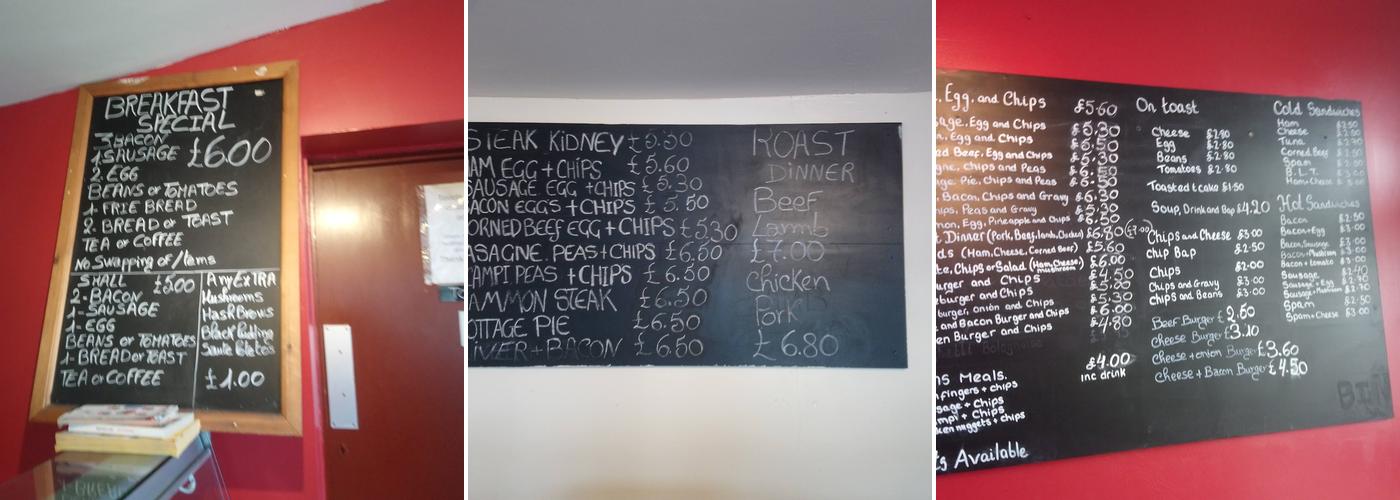 BREAKFAST
SPECIAL
3. BACON
1 SAUSAGE £6.00
2. EGG
BEANS or TOMATOES
1 FRIE BREAD
2. BREAD or TOAST
TEA or COFFEE
No Swapping of Items
SMALL £5.00
2- BACON
1- SAUSAGE
1- EGG
BEANS or TOMATOES
1- BREAD or TOAST
TEA or COFFEE
Any EXTRA
Mushrooms
Hash Browns
Black Pudding
£1.00
STEAK KIDNEY £5.50
AM EGG + CHIPS £5.60
SAUSAGE EGG + CHIPS £5.30
ACON EGGS + CHIPS £5.50
ORNED BEEF EGG + CHIPS £5.30
ASAGNE. PEAS + CHIPS £6.50
AMPI PEAS + CHIPS £6.50
AMMON STEAK £6.50
OTTAGE PIE £6.50
IVER + BACON £6.50
ROAST
DINNER
Beef
Lamb
£7.00
chicken
Pork
£6.80
. Egg, and Chips £5.60
age, Egg and Chips £5.30
n, Egg and Chips £5.50
ed Beef, Egg and Chips £5.30
gne, Chips and Peas £6.50
ge, Pie, Chips and Peas £6.50
, Bacon, Chips and Gravy £6.30
hips, Peas and Gravy £5.30
mon, Egg, Pineapple and Chips £6.50
t Dinner (Pork, Beef, lamb, Chicken) £6.80 (£7.00)
ds (Ham, Cheese, Corned Beef) £5.60
te, Chips or Salad (Ham, Cheese, mushroom) £6.00
urger and Chips £4.50
eburger and Chips £5.00
burger, onion and Chips £5.30
and Bacon Burger and Chips £6.00
en Burger and Chips £4.80
£4.00
inc drink
s Meals.
fingers + chips
sage + Chips
mpi + Chips
ken nuggets + chips
ts Available
On toast
Cheese £2.80
Egg £2.80
Beans £2.80
Tomatoes £2.80
Toasted t cake £1.50
Soup, Drink and Bap £4.20
Chips and Cheese £3.00
chip Bap £2.50
Chips £2.00
Chips and Gravy £3.00
chips and Beans £3.00
Beef Burger £2.60
cheese Burger £3.10
cheese + onion Burger £3.60
cheese + Bacon Burger £4.50
Cold Sandwiches
Ham
Cheese
Tuna
Corned Beef
Spam
B.L.T.
Ham + Cheese
Hot Sandwiches
Bacon £2.50
Bacon + Egg £3.00
Bacon, Sausage £3.00
Bacon + Mushroom £3.00
Bacon + tomato £3.00
Sausage £2.40
Sausage + Egg £2.80
Sausage + Mushroom £2.70
Spam £2.50
Spam + Cheese £3.00